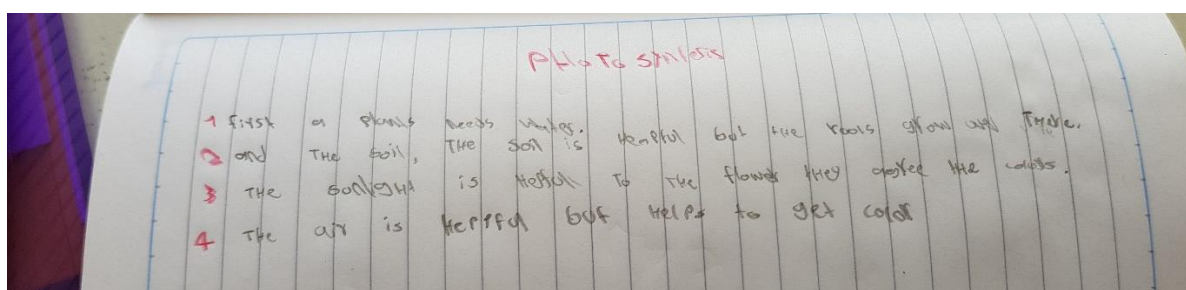 PHoTo SYNtesis
1 first a plants needs water.
2 and THE Soil, THE Soil is Helpful but the roots grow and There.
3 THE sonligHt is HelfUl To THE flower tHey the colors.
4 THe air is Helpful but Helps to get color